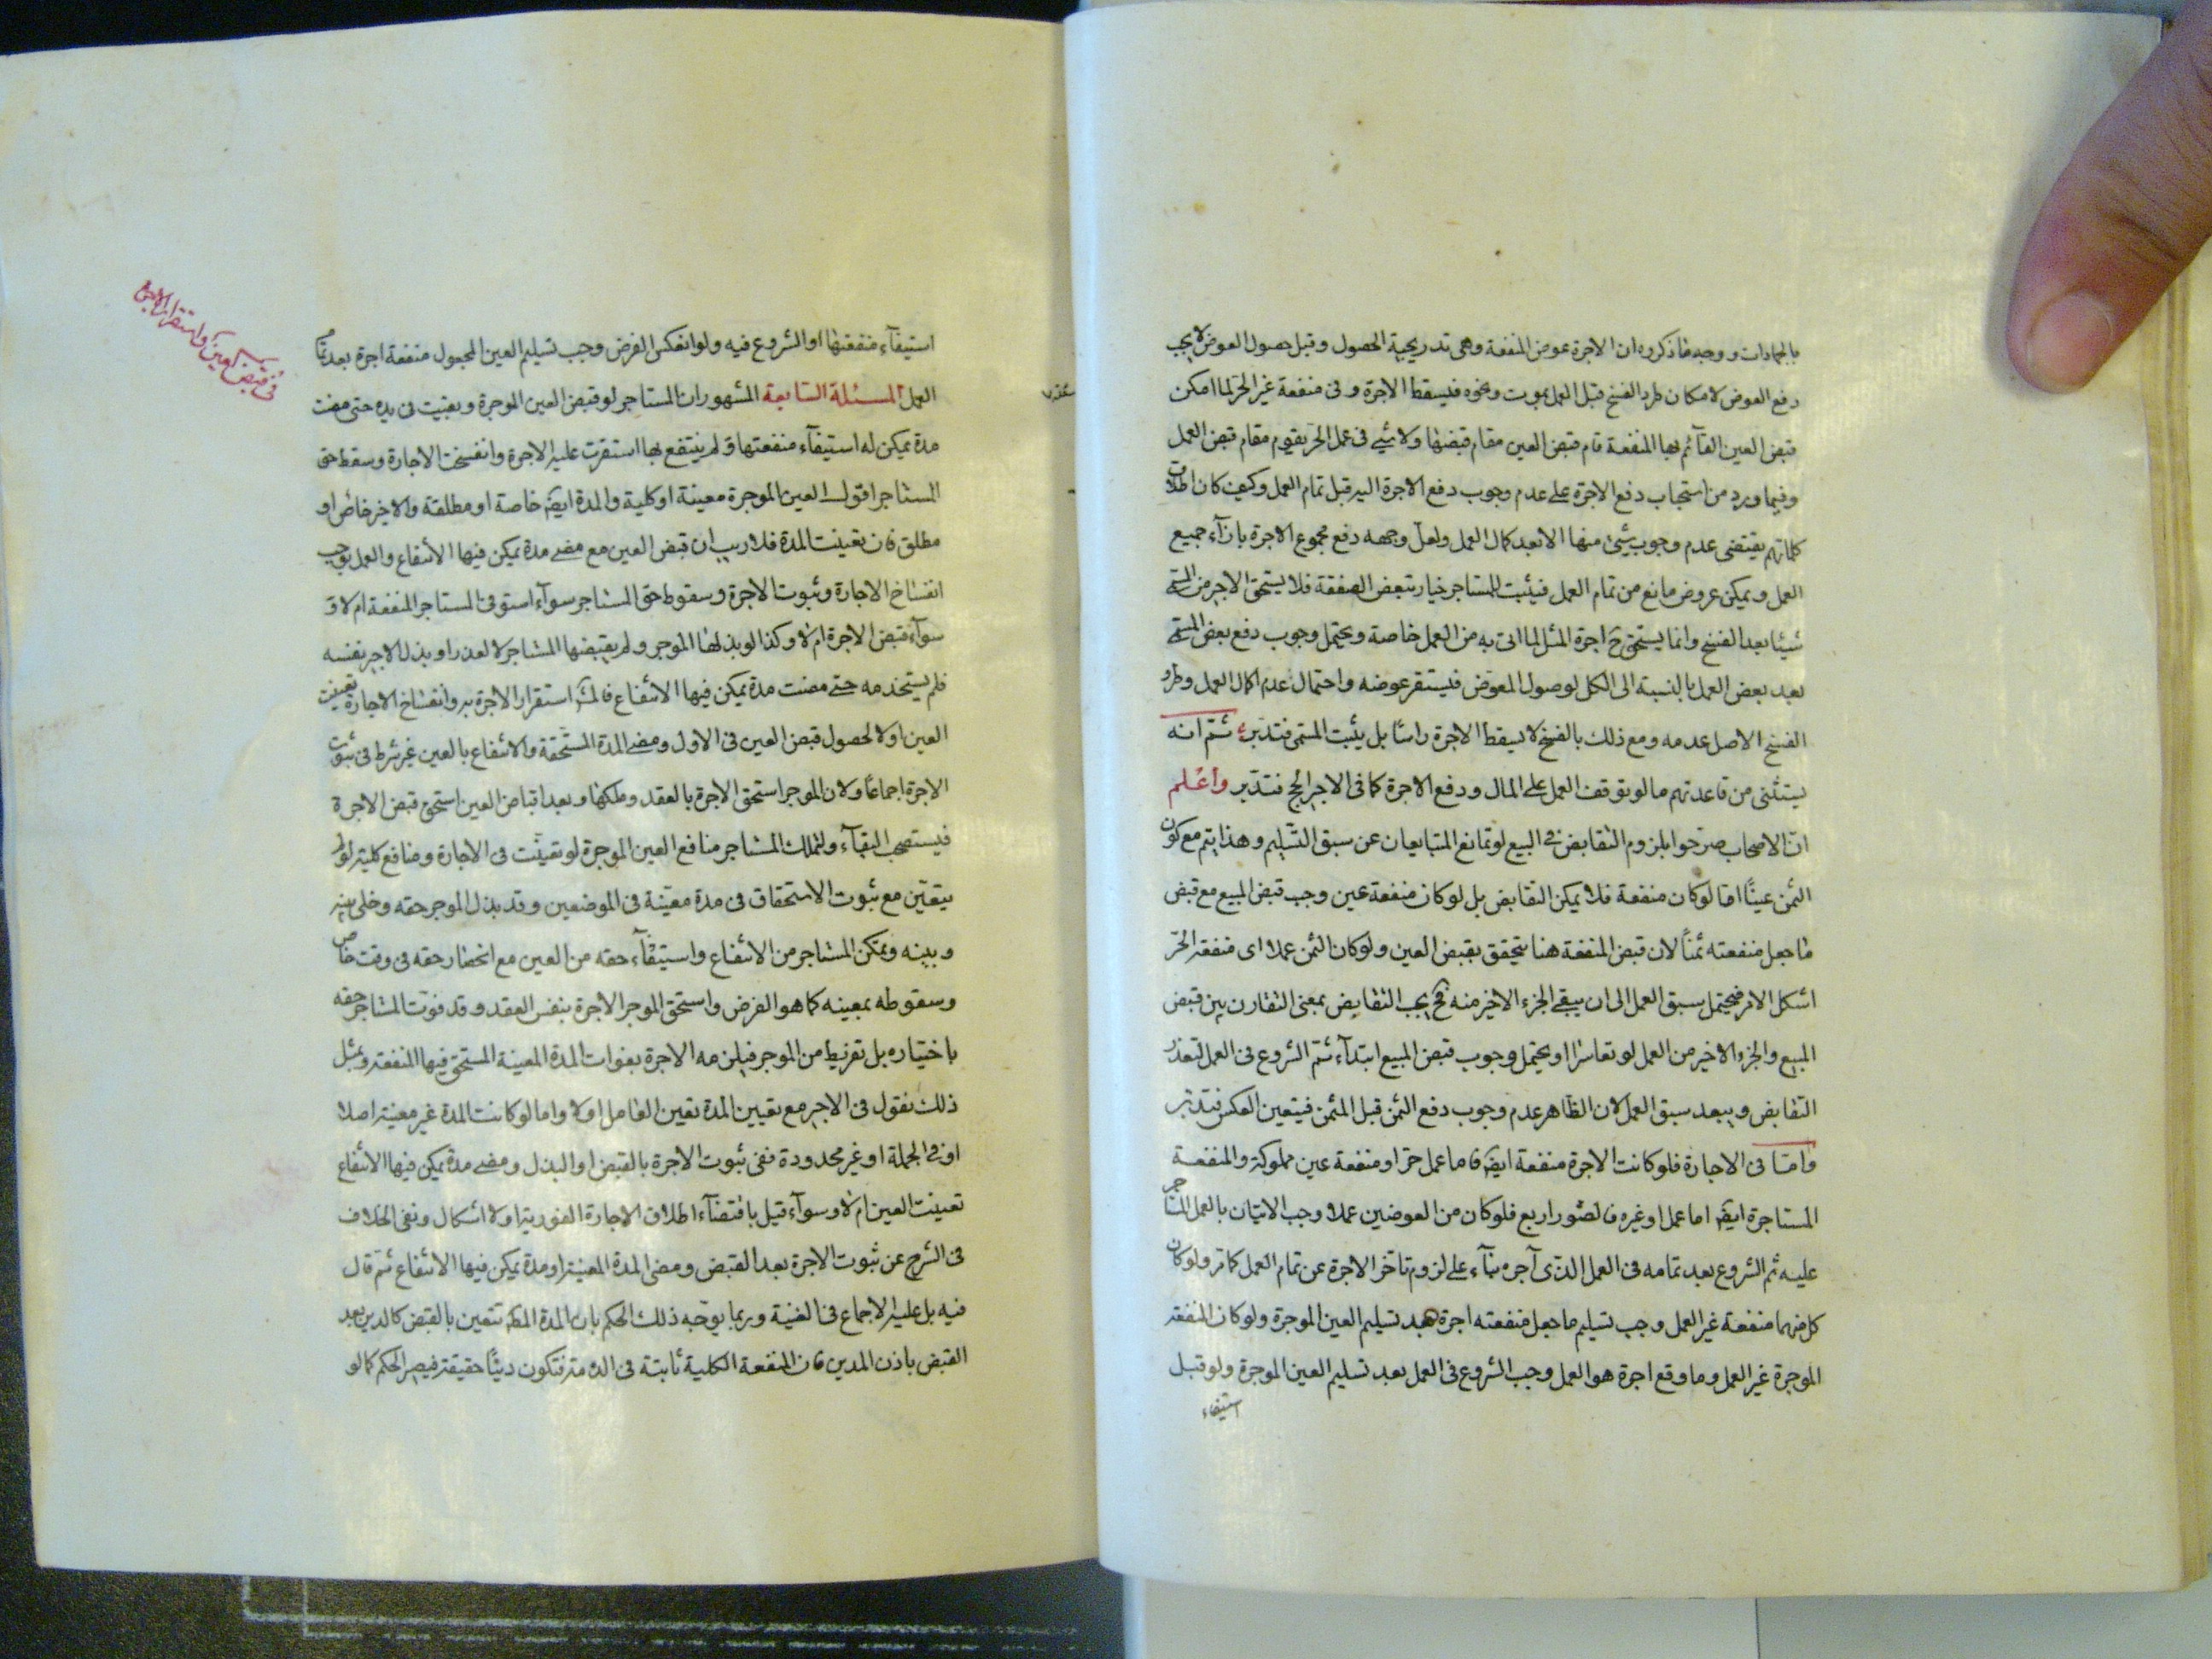 بالجمادات ووجه ما ذكروه ان الاجرة عوض المنفعة وهى تدريجية الحصول وقبل حصول العوض لا يجب
دفع العوض لامكان طرد الفسخ قبل العمل بموت ونحوه فيسقط الاجرة وفى منفعة غير الحر لما امكن
قبض العين القآئم بها المنفعة قام قبض العين مقام قبضها ولا شئ فى عمل الحر يقوم مقام قبض العمل
وفيما ورد من استحباب دفع الاجرة على عدم وجوب دفع الاجرة اليه قبل تمام العمل وكيف كان اطلاق
كلماتهم يقتضى عدم وجوب شئ منها الا بعد كمال العمل ولعل وجهه دفع مجموع الاجرة بازآء جميع
العمل ويمكن عروض مانع من تمام العمل فيثبت للمستاجر خيار تبعض الصفقة فلا يستحق الاجير من المسمى
شيئا بعد الفسخ وانما يستحق ح اجرة المثل لما اتى به من العمل خاصة ويحتمل وجوب دفع بعض المسمى
بعد بعض العمل بالنسبة الى الكل لوصول المعوض فيستقر عوضه واحتمال عدم اكمال العمل وطرو
الفسخ الاصل عدمه ومع ذلك بالفسخ لا يسقط الاجرة راسًا بل يثبت المسمى فتدبر ثم انه
يستثنى من قاعدتهم ما لو توقف العمل على المال ودفع الاجرة كما فى الاجير للحج فتدبر واعلم
ان الاصحاب صرحوا بلزوم التقابض فى البيع لو تمانع المتبايعان عن سبق التسليم وهذا يتم مع كون
الثمن عينًا اما لو كان منفعة فلا يمكن التقابض بل لو كان منفعة عين وجب قبض المبيع مع قبض
ما جعل منفعته ثمنًا لان قبض المنفعة هنا يتحقق بقبض العين ولو كان الثمن عملا اى منفعة الحر
اشكل الامر فيحتمل سبق العمل الى ان يبقى الجزء الاخير منه فح يجب التقابض بمعنى التقارن بين قبض
المبيع والجزء الاخير من العمل لو تعاسرا او يحتمل وجوب قبض المبيع ابتدآء ثم الشروع فى العمل لتعذر
التقابض ويبعد سبق العمل لان الظاهر عدم وجوب دفع الثمن قبل المثمن فيتعين العكس فتدبر
واما فى الاجارة فلو كانت الاجرة منفعة ايضا فاما عمل حر او منفعة عين مملوكة والمنفعة
المستاجرة ايضا اما عمل او غيره فالصور اربع فلو كان من العوضين عملا وجب الاتيان بالعمل المستاجر
عليه ثم الشروع بعد تمامه فى العمل الذى آجره بنآء على لزوم تاخر الاجرة عن تمام العمل كما مر ولو كان
كل منهما منفعة غير العمل وجب تسليم ما جعل منفعته اجرة بعد تسليم العين الموجرة ولو كان المنفعة
الموجرة غير العمل وما وقع اجرة هو العمل وجب الشروع فى العمل بعد تسليم العين الموجرة ولو قبل
استيفاء
استيفآء منفعتها او الشروع فيه ولو انعكس الفرض وجب تسليم العين المجعول منفعة اجرة بعد تمام
العمل المسئلة السابعة المشهور ان المستاجر لو قبض العين الموجرة وبقيت فى يده حتى مضت
فى قبض العين واستقرار الاجرة
مدة يمكن له استيفآء منفعتها ولم ينتفع بها استقرت عليه الاجرة وانفسخت الاجارة وسقط حق
المستاجر اقول العين الموجرة معينة او كلية والمدة ايضا خاصة او مطلقة والاخير خاص او
مطلق فان تعينت المدة فلا ريب ان قبض العين مع مضى مدة يمكن فيها الانتفاع والعمل يوجب
انفساخ الاجارة وثبوت الاجرة وسقوط حق المستاجر سوآء استوفى المستاجر المنفعة ام لا و
سوآء قبض الاجرة ام لا وكذا لو بذلها الموجر ولم يقبضها المستاجر لا لعذر او بذل الاجير نفسه
فلم يستخدمه حتى مضت مدة يمكن فيها الانتفاع فالمش استقرار الاجرة به وانفساخ الاجارة تعينت
العين او لا لحصول قبض العين فى الاول ومضى المدة المستحقة والانتفاع بالعين غير شرط فى ثبوت
الاجرة اجماعًا ولان الموجر استحق الاجرة بالعقد وملكها وبعد اقباض العين استحق قبض الاجرة
فيستصحب البقآء ولتملك المستاجر منافع العين الموجرة لو تعينت فى الاجارة ومنافع كلية لو لم
يتعين مع ثبوت الاستحقاق فى مدة معينة فى الموضعين وقد بذل الموجر حقه وخلى بينه
وبينه وتمكن المستاجر من الانتفاع واستيفآء حقه من العين مع انحصار حقه فى وقت خاص
وسقوطه بمعينه كما هو الفرض واستحق الموجر الاجرة بنفس العقد وقد فوت المستاجر حقه
باختياره بل تفريط من الموجر فيلزمه الاجرة بفوات المدة المعينة المستحق فيها المنفعة وبمثل
ذلك نقول فى الاجير مع تعيين المدة تعين العامل او لا واما لو كانت المدة غير معينة اصلا
او فى الجملة او غير محدودة ففى ثبوت الاجرة بالقبض او البذل ومضى مدة يمكن فيها الانتفاع
تعينت العين ام لا وسوآء قيل باقتضآء اطلاق الاجارة الفورية او لا اشكال ونفى الخلاف
فى الشرح عن ثبوت الاجرة بعد القبض ومضى المدة المعينة او مدة يمكن فيها الانتفاع ثم قال
فيه بل عليه الاجماع فى الغنية وربما يوجه ذلك الحكم بان المدة المطلقة تتعين بالقبض كالدين بعد
القبض باذن المدين فان المنفعة الكلية ثابتة فى الذمة فتكون دينًا حقيقة فيصير الحكم كما لو